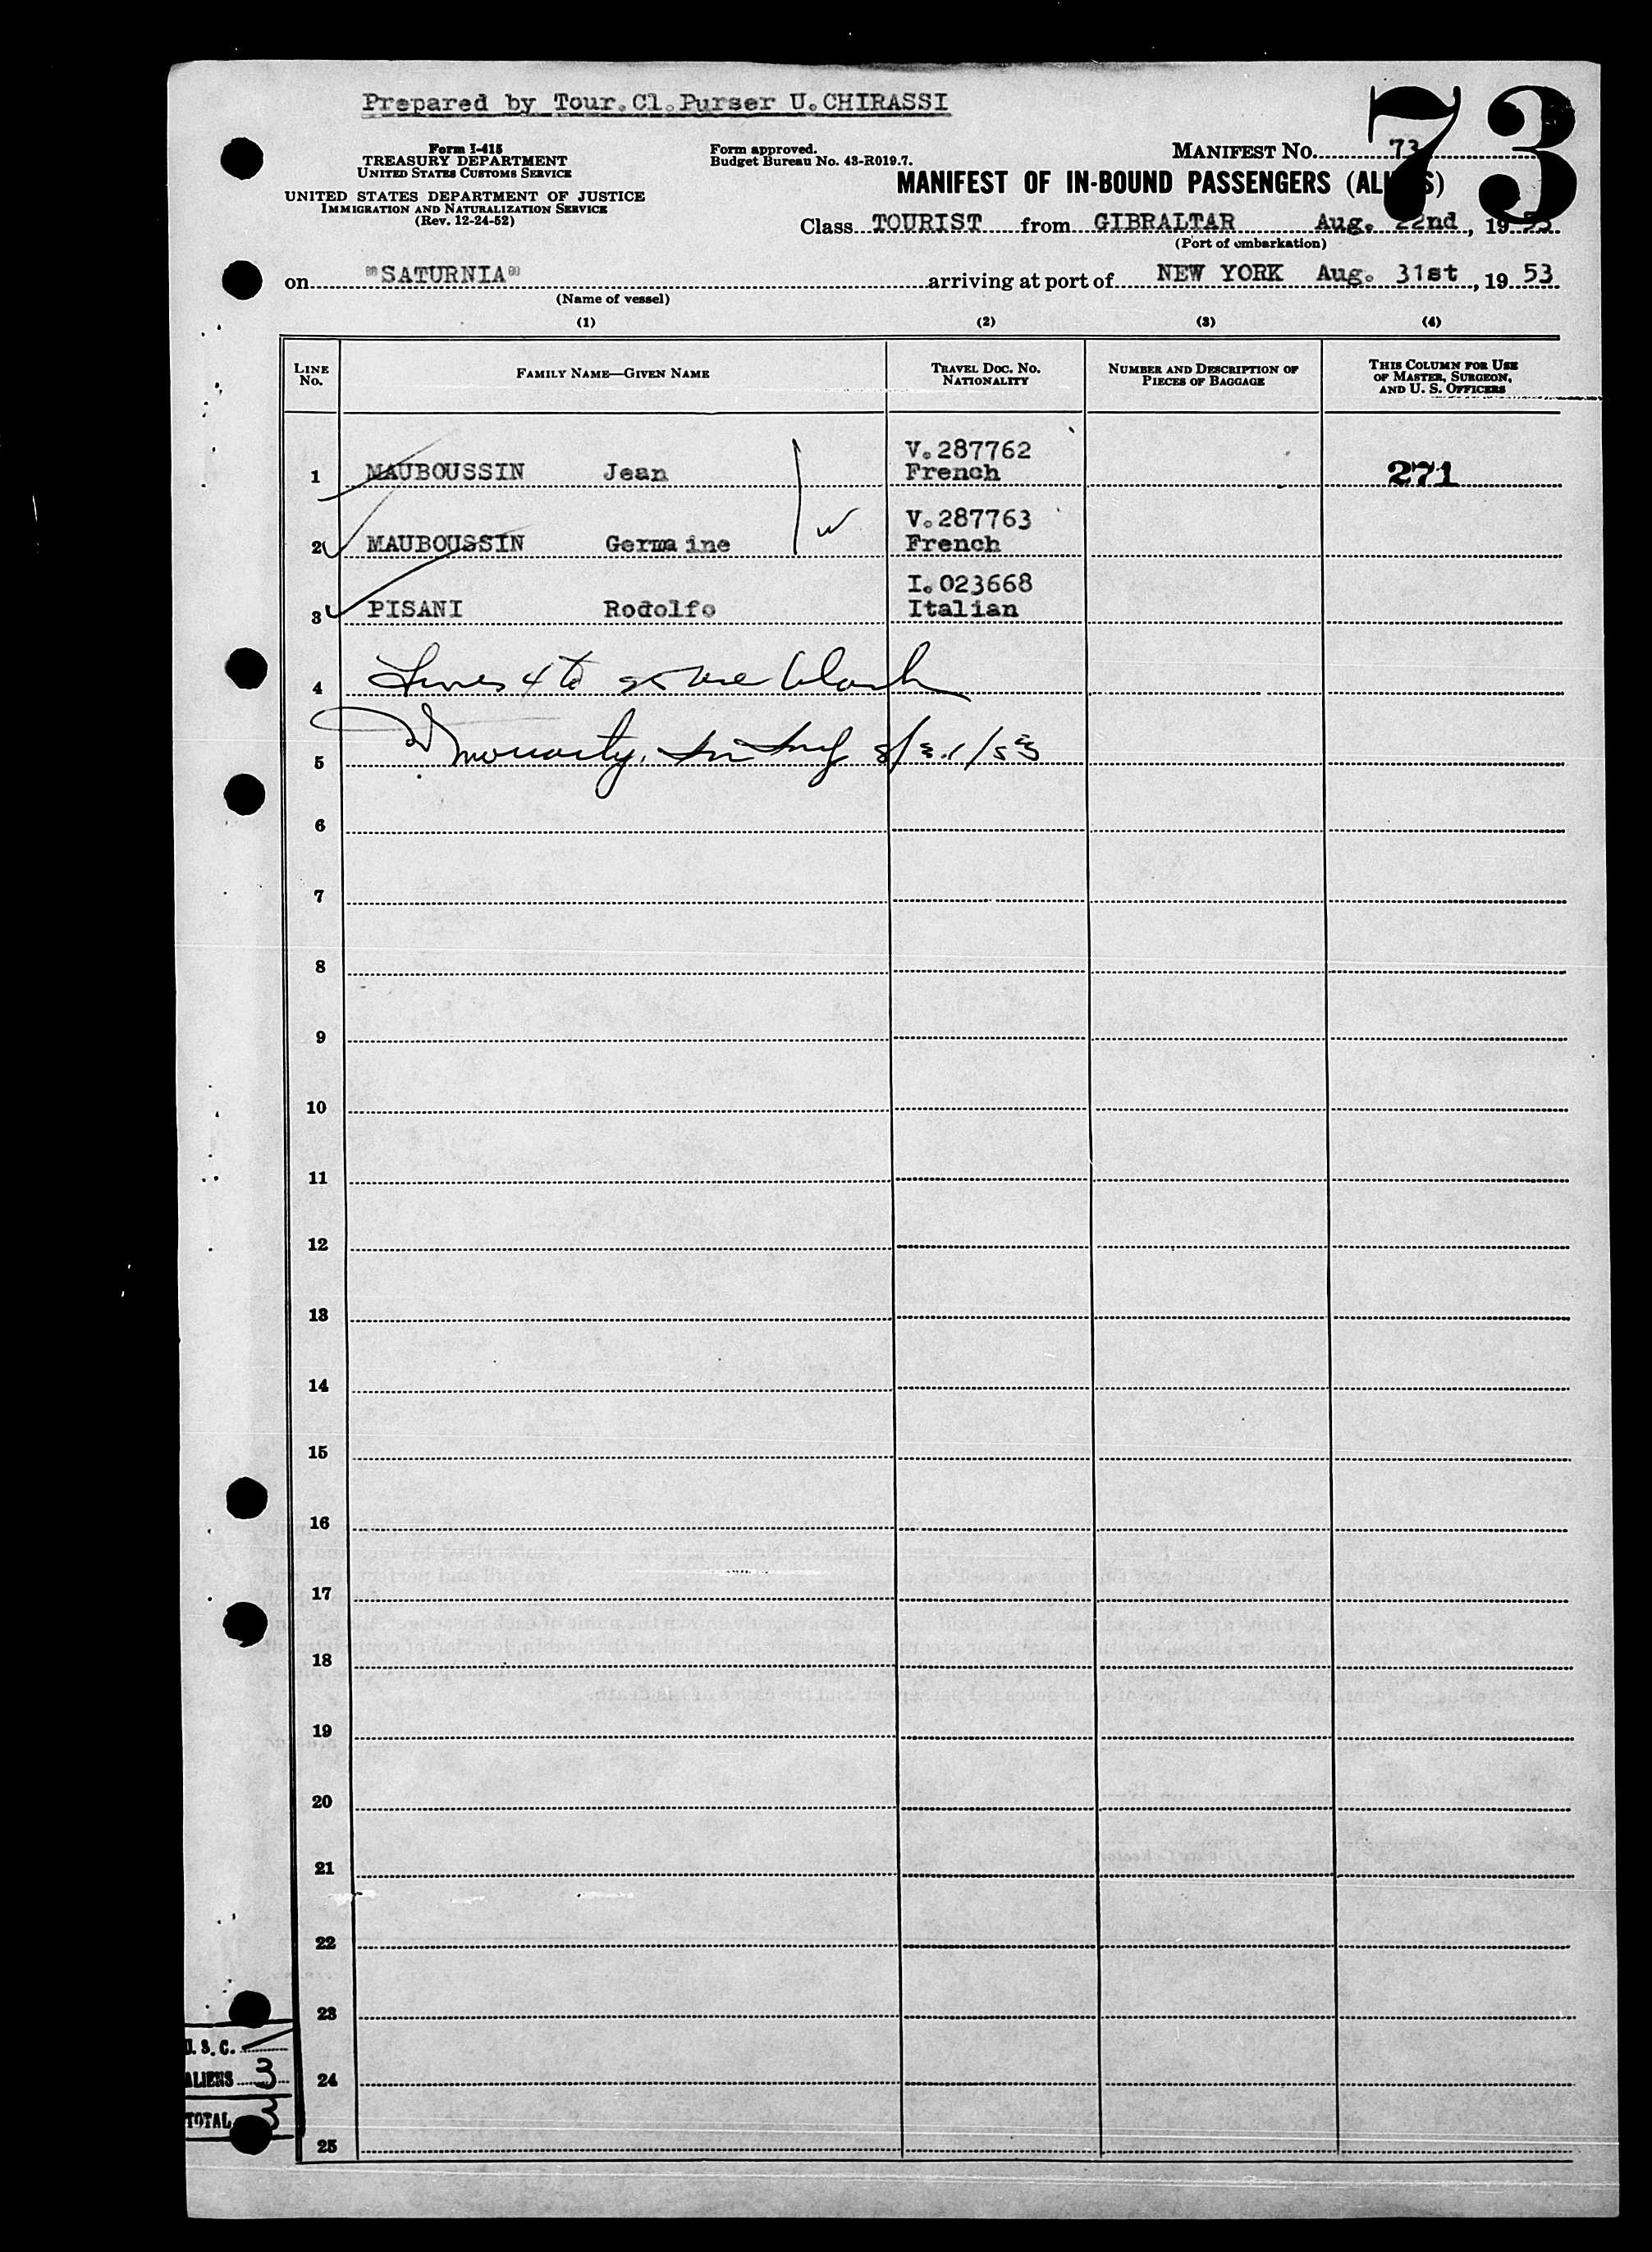 Prepared by Tour.Cl.Purser U.CHIRASSI
73
Form I-415
TREASURY DEPARTMENT
UNITED STATES CUSTOMS SERVICE
UNITED STATES DEPARTMENT OF JUSTICE
IMMIGRATION AND NATURALIZATION SERVICE
(Rev. 12-24-52)
Form approved.
Budget Bureau No. 43-R019.7.
MANIFEST NO. 73
MANIFEST OF IN-BOUND PASSENGERS (ALIENS)
Class TOURIST from GIBRALTAR Aug. 22nd, 1953
(Port of embarkation)
on "SATURNIA" arriving at port of NEW YORK Aug. 31st, 1953
(Name of vessel)
(1) (2) (3) (4)
LINE NO. FAMILY NAME—GIVEN NAME TRAVEL DOC. NO. NATIONALITY NUMBER AND DESCRIPTION OF PIECES OF BAGGAGE THIS COLUMN FOR USE OF MASTER, SURGEON, AND U. S. OFFICERS
V.287762
1 MAUBOUSSIN Jean French 271
V.287763
2 MAUBOUSSIN Germaine French
I.023668
3 PISANI Rodolfo Italian
4 Lines 4 to 25 are blank
5 Moriarty, 8/31/53
6
7
8
9
10
11
12
13
14
15
16
17
18
19
20
21
22
23
U. S. C.
ALIENS 3
24
TOTAL 3
25